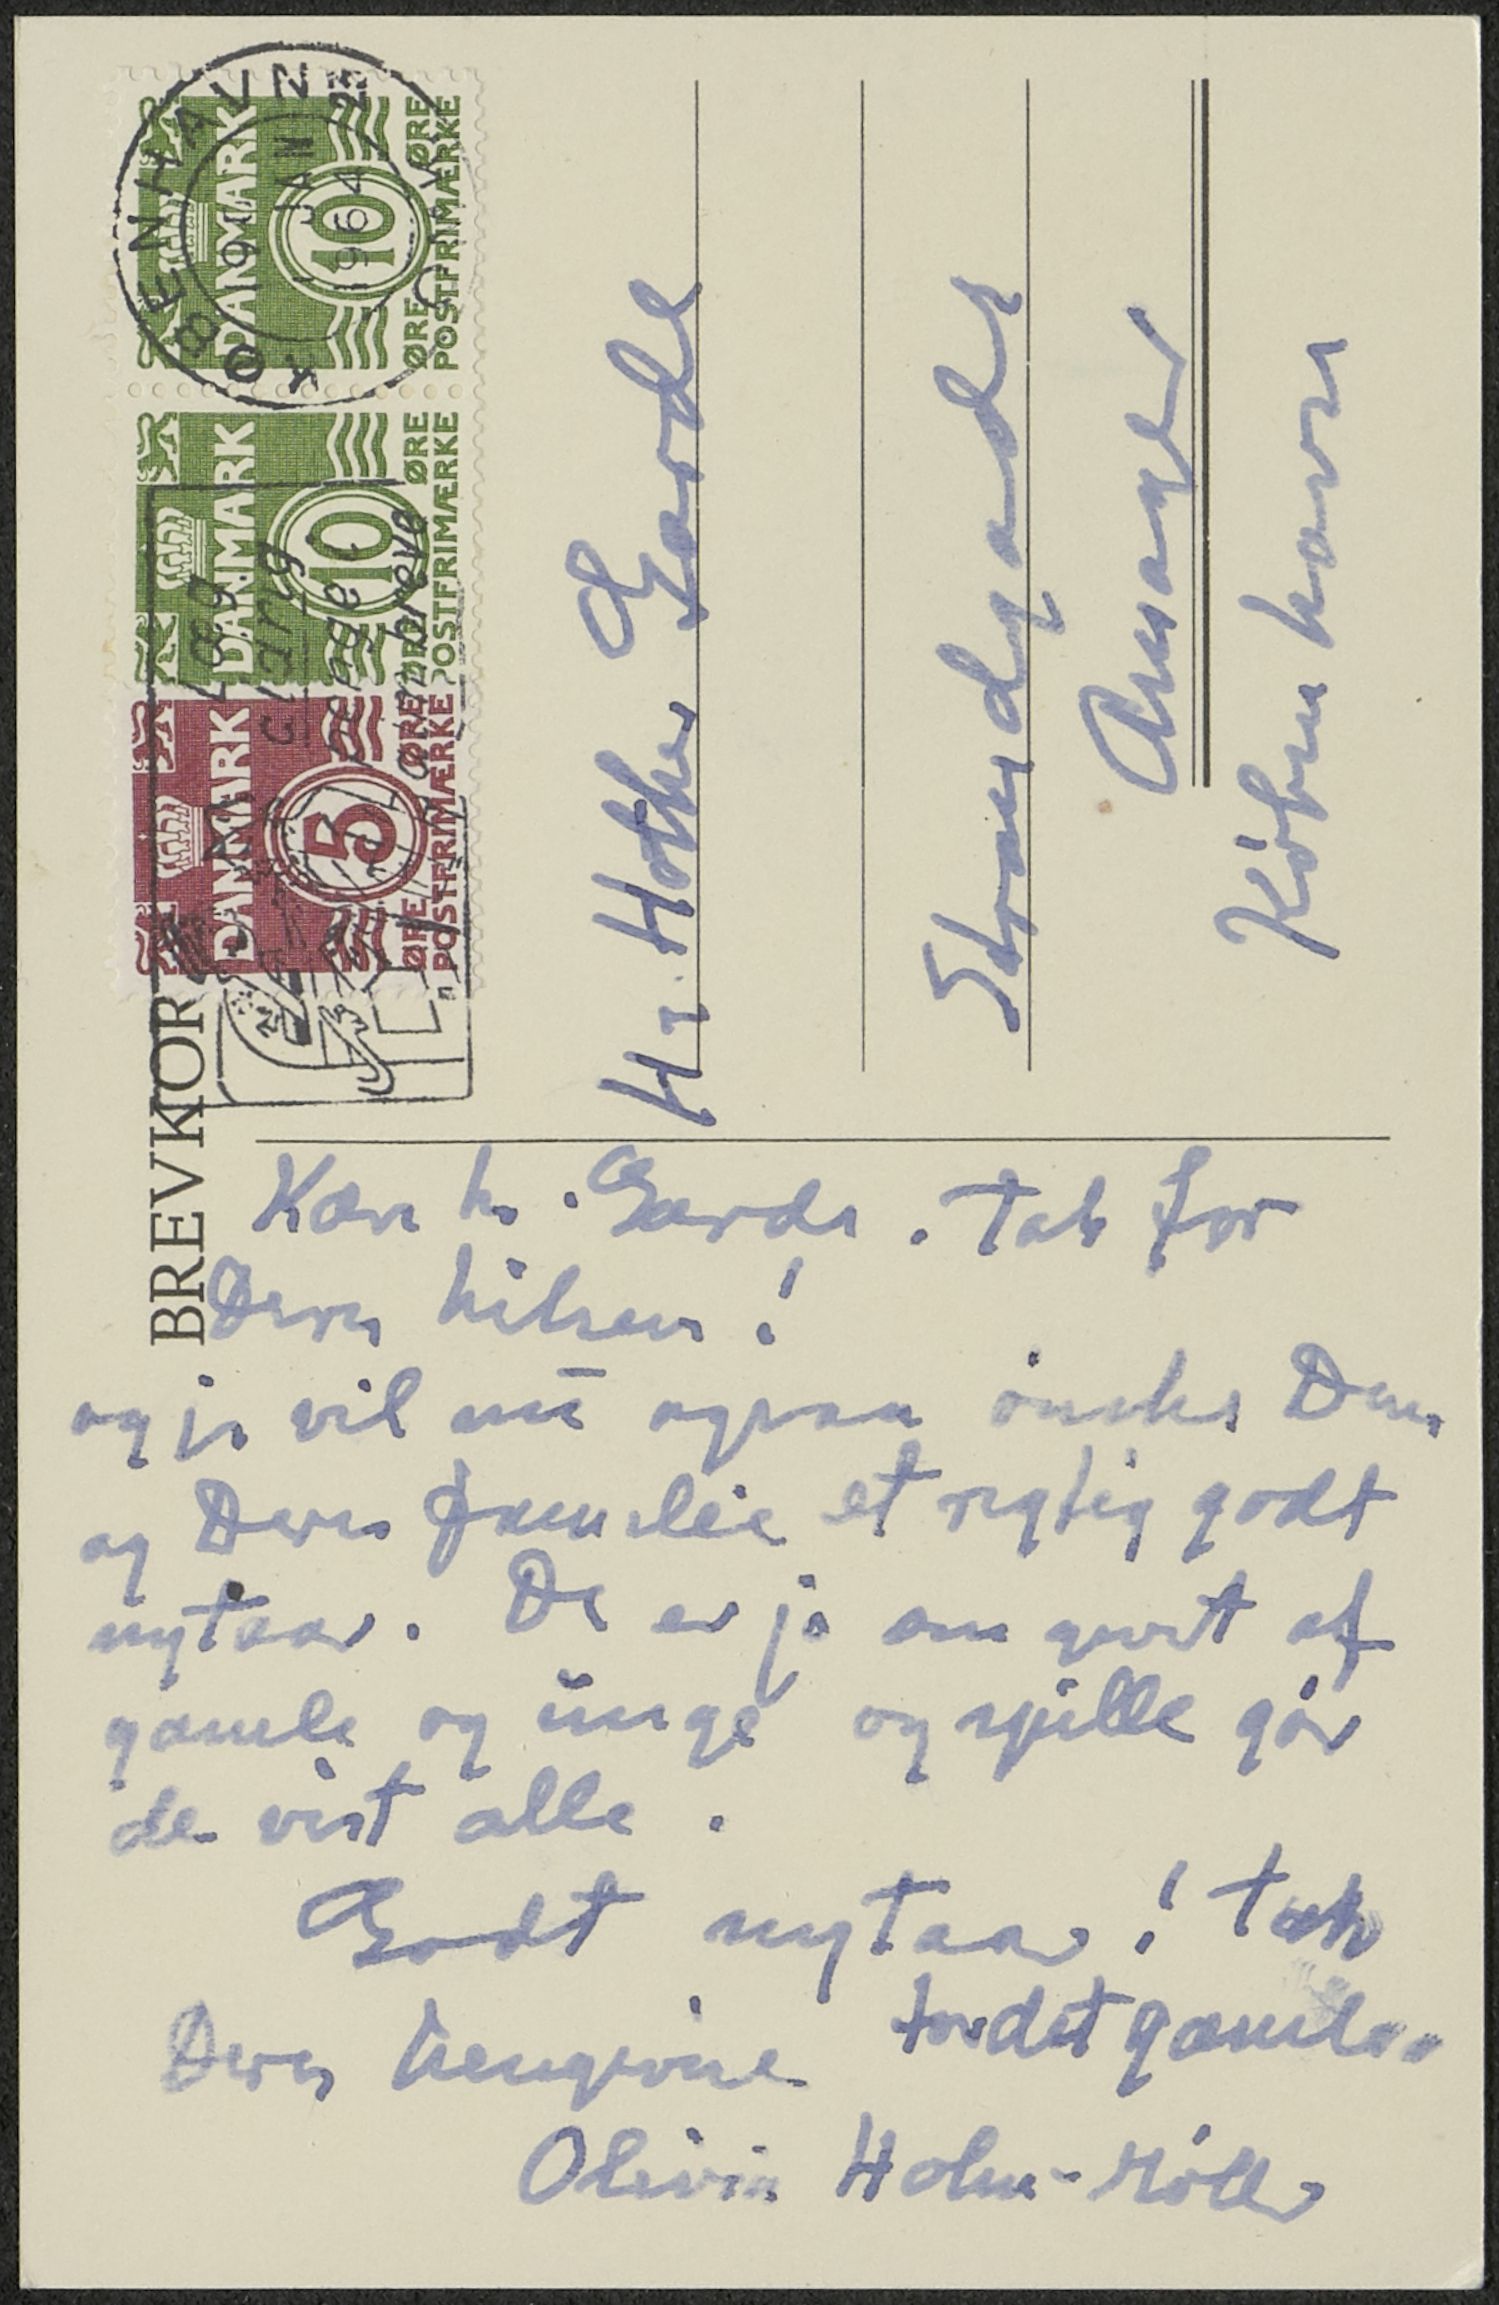 BREVKOR
KØBENHAVN
9 JAN
1964
DANMARK
10
ØRE ØRE
POSTFRIMÆRKE
DANMARK
10
ØRE ØRE
POSTFRIMÆRKE
DANMARK
5
ØRE ØRE
POSTFRIMÆRKE
Læg
aldrig
penge i
alm. breve
Hr. Hother Garde
Strandgade
Amager
København
Kære hr. Garde. Tak for
Deres hilsen!
og je vil nu ogsaa ønske Dem
og Deres familie et rigtig godt
nytaar. De er jo omgivet af
gamle og unge og spille gør
de vist alle.
Godt nytaar! tak
for det gamle
Deres hengivne
Olivia Holm-Møller